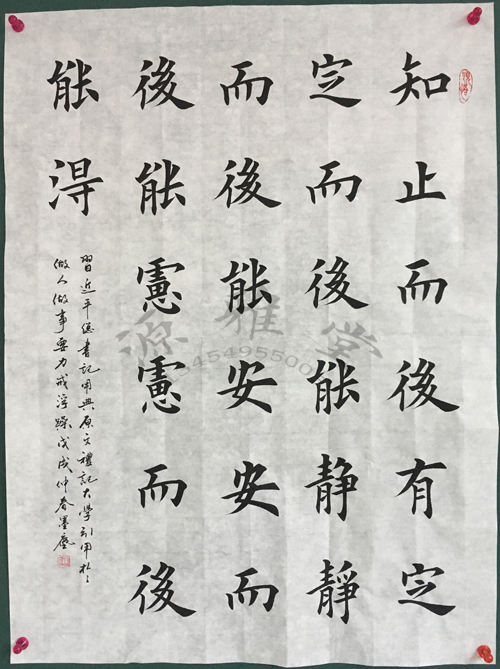 知止而後有定
定而後能静静
而後能安安而
後能憲憲而後
能得
習近平總書記用典原文禮記大學引用於
做人做事要力戒浮躁戊戌仲春墨
源雅堂